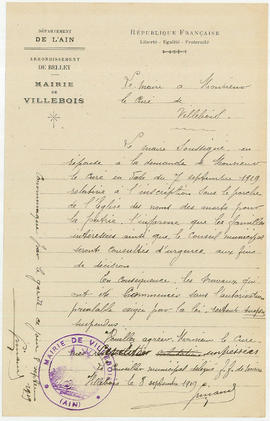 DÉPARTEMENT
DE L'AIN
ARRONDISSEMENT
DE BELLEY
MAIRIE
DE
VILLEBOIS
RÉPUBLIQUE FRANÇAISE
Liberté - Égalité - Fraternité
Le maire a Monsieur
le Curé de
Villebois
Le maire Soussigné, en
reponse a la demande de Monsieur
le Curé en date du 7 septembre 1919
relative a l'inscription sous le porche
de l'Eglise des noms des morts pour
la patrie, l'informe que les familles
interessées ainsi que le Conseil municipal
seront consultés d'urgence, aux fins
de décision.
En conséquence les travaux qui
ont été Commencés sans l'autorisation
préalable exigée par la loi, seront
suspendus
Veuillez agréer, Monsieur le Curé
mes salutations empressées
Conseiller municipal délégué f.f. de
Villebois 8 septembre 1919
MAIRIE DE VILLEBOIS
(AIN)